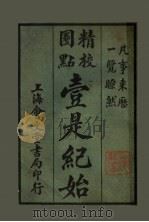 凡事来歷
一覽瞭然
精校
圈點
壹是紀始
上海
書局印行